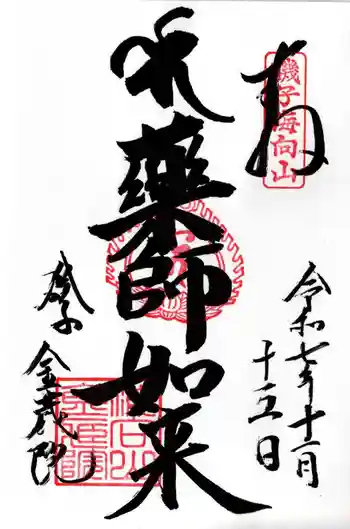 奉
磯子海向山
令和七年十一月
十五日
薬師如来
磯子
金蔵院